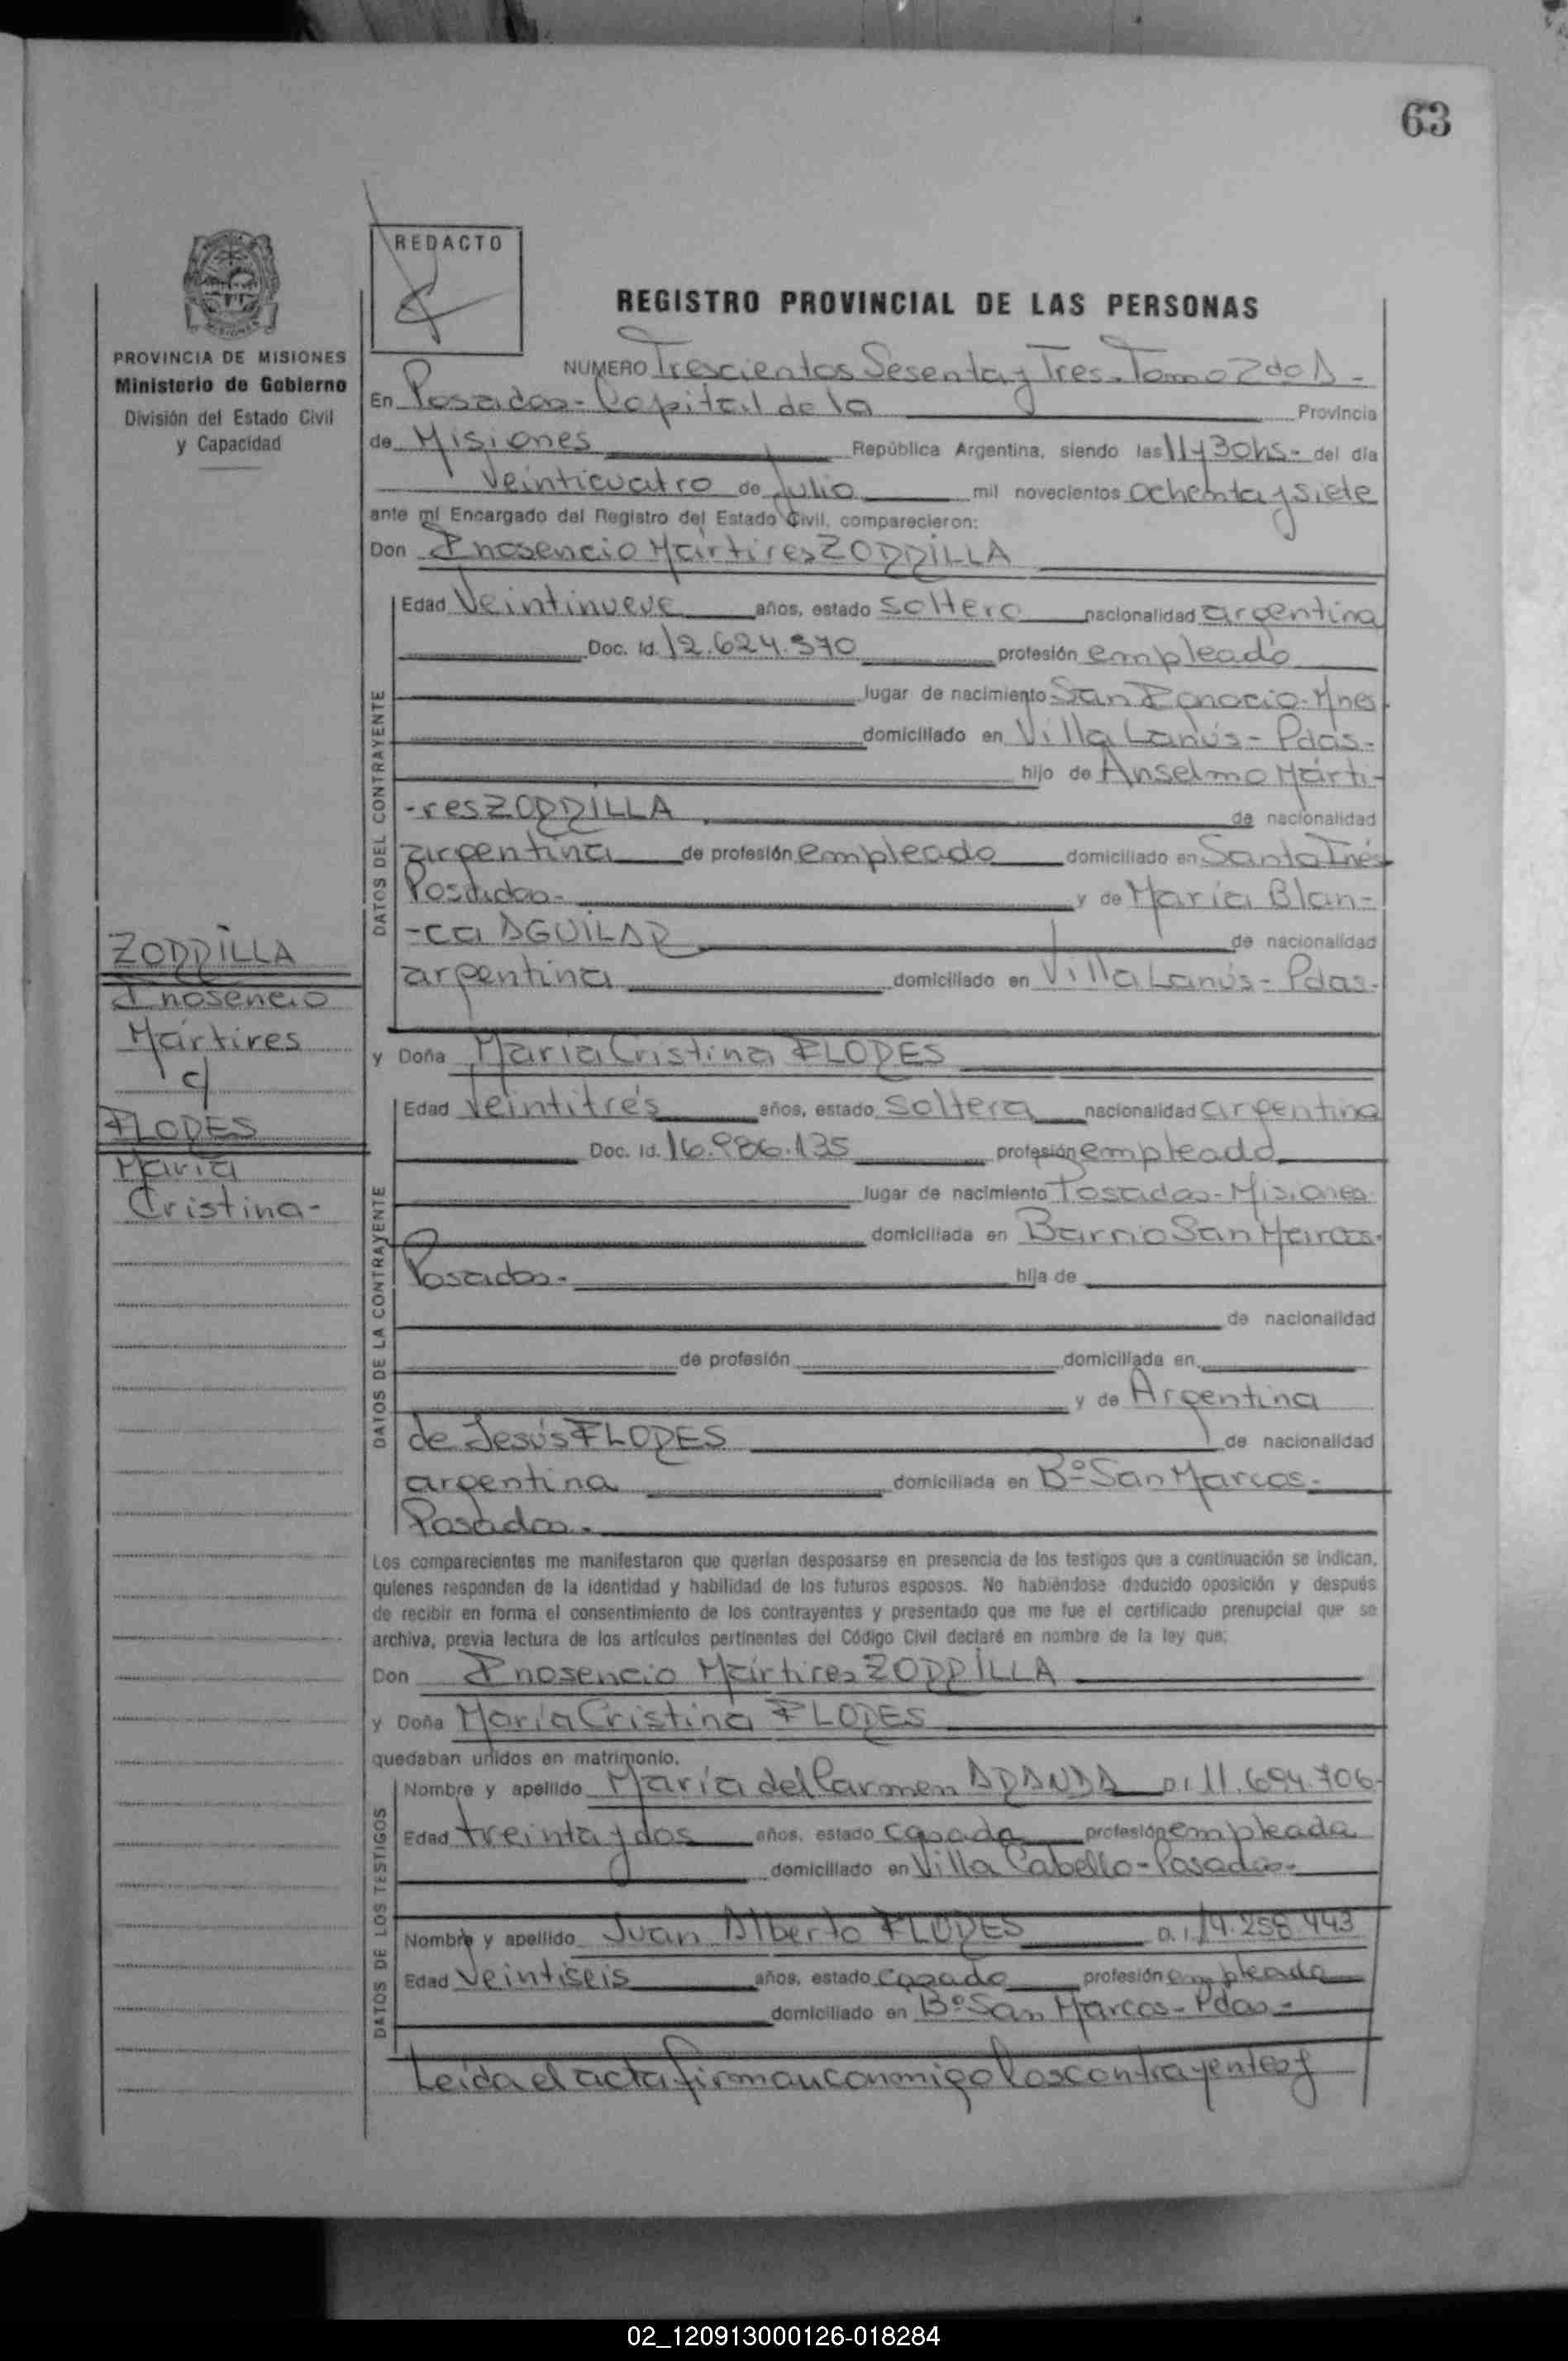 63
REDACTO
REGISTRO PROVINCIAL DE LAS PERSONAS
PROVINCIA DE MISIONES
Ministerio de Gobierno
División del Estado Civil
y Capacidad
NUMERO Trescientos Sesenta y Tres - Tomo 2do A -
En Posadas - Capital de la Provincia
de Misiones República Argentina, siendo las 11 y 30 hs - del día
Veinticuatro de Julio mil novecientos ochenta y siete
ante mí Encargado del Registro del Estado Civil, comparecieron:
Don Inosencio Mártires ZORRILLA
Edad Veintinueve años, estado soltero nacionalidad argentina
Doc. Id. 12.624.370 profesión empleado
lugar de nacimiento San Ignacio - Mnes
domiciliado en Villa Lanús - Pdas -
hijo de Anselmo Márti-
-res ZORRILLA de nacionalidad
argentina de profesión empleado domiciliado en Santa Inés
Posadas - y de María Blan-
-ca AGUILAR de nacionalidad
argentina domiciliado en Villa Lanús - Pdas -
ZORRILLA
Inosencio
Mártires
c/
FLORES
María
Cristina -
y Doña María Cristina FLORES
Edad Veintitrés años, estado soltera nacionalidad argentina
Doc. Id. 16.986.135 profesión empleada
lugar de nacimiento Posadas - Misiones
domiciliada en Barrio San Marcos -
Posadas - hija de
de nacionalidad
de profesión domiciliada en
y de Argentina
de Jesús FLORES de nacionalidad
argentina domiciliada en Bº San Marcos -
Posadas -
DATOS DEL CONTRAYENTE
DATOS DE LA CONTRAYENTE
Los comparecientes me manifestaron que querían desposarse en presencia de los testigos que a continuación se indican,
quienes responden de la identidad y habilidad de los futuros esposos. No habiéndose deducido oposición y después
de recibir en forma el consentimiento de los contrayentes y presentado que me fue el certificado prenupcial que se
archiva, previa lectura de los artículos pertinentes del Código Civil declaré en nombre de la ley que:
Don Inosencio Mártires ZORRILLA
y Doña María Cristina FLORES
quedaban unidos en matrimonio.
Nombre y apellido María del Carmen ARANDA D.I 11.694.706 -
Edad treinta y dos años, estado casada profesión empleada
domiciliado en Villa Cabello - Posadas -
Nombre y apellido Juan Alberto FLORES D.I. 14.258.443
Edad Veintiseis años, estado casado profesión empleado
domiciliado en Bº San Marcos - Pdas -
DATOS DE LOS TESTIGOS
Leída el acta firman conmigo los contrayentes y
02_120913000126-018284